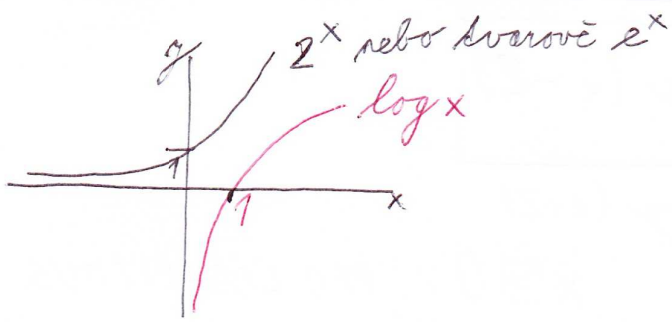 y
2^x nebo tvarově e^x
log x
1
1
x